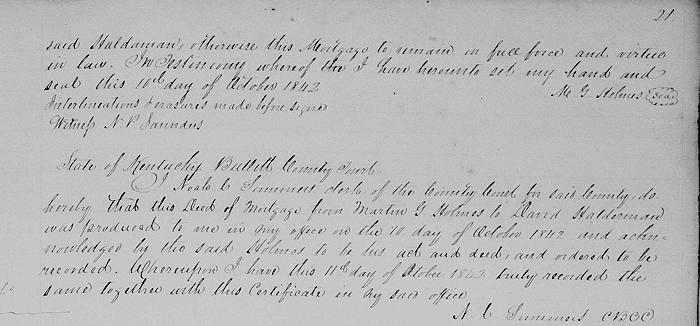 21
said Haldaman, otherwise this Mortgage to remain in full force and virtue
in law. In Testimony whereof the I have hereunto set my hand and
seal this 10th day of October 1842
M. G. Holmes Seal
Interlineations & erasures made before signed
Witness N. P. Saunders
State of Kentucky Bullitt County Sct.
I Noah C Summers clerk of the County Court for said County, do
hereby that this Deed of Mortgage from Martin G Holmes to David Halderman
was produced to me in my office on the 10 day of October 1842 and ackn-
nowledged by the said Holmes to be his act and deed, and ordered to be
recorded. Whereupon I have this 11th day of Octobr 1842 truly recorded the
same together with this Certificate in my said office
N. C Summers CBCC